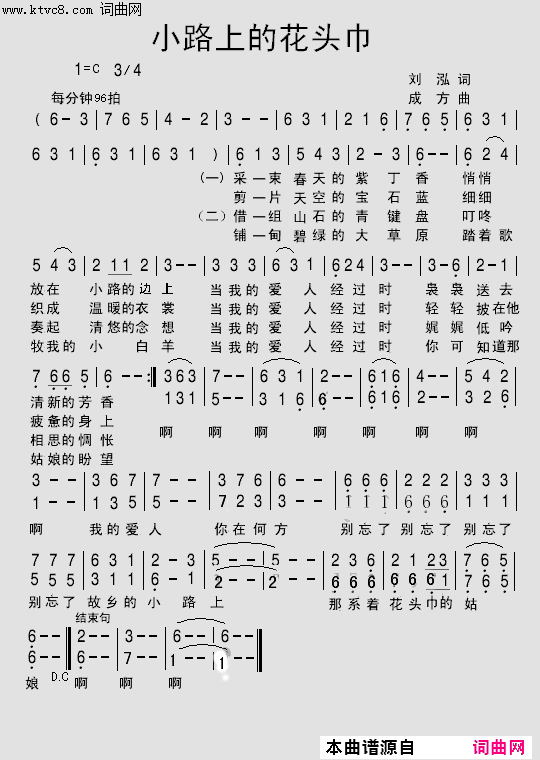 www.ktvc8.com 词曲网
小路上的花头巾
1=C 3/4
刘泓词
每分钟96拍
成方曲
( 6-3 | 765 | 4-2 | 3-- | 631 | 216 | 765 | 631 |
631 | 631 | 631 ) | 613 | 543 | 2-3 | 6-- | 624 |
(一)采一束春天的紫丁香 悄悄
剪一片天空的宝石蓝 细细
(二)借一组山石的青键盘 叮咚
铺一甸碧绿的大草原 踏着歌
543 | 2112 | 3-- | 343 | 631 | 624 | 3-- | 3-6 | 2-1 |
放在 小路的边上 当我的爱人经过时 袅袅送去
织成 温暖的衣裳 当我的爱人经过时 轻轻披在他
奏起 清悠的念想 当我的爱人经过时 娓娓低吟
牧我的小 白羊 当我的爱人经过时 你可知道那
7665 | 6-- :| 363 | 7-- | 631 | 2-- | 616 | 4-- | 542 |
131 | 5-- | 316 | 6-- | 216 | 2-- | 326 |
清新的芳香
疲惫的身上
相思的惆怅
姑娘的盼望
啊 啊 啊 啊 啊 啊 啊
3-- | 3-3 | 367 | 7-- | 723 | 3-- | 666 | 222 | 333 |
1-- | 1-1 | 135 | 5-- | 723 | 3-- | 111 | 666 | 333 |
啊 我的爱人 你在何方 别忘了别忘了别忘了
777 | 631 | 2-2 | 5-- | 5-- | 236 | 2123 | 765 |
222 | 631 | 2-2 | 2-- | 2-- | 666 | 6661 | 765 |
别忘了 故乡的小路上 那系着花头巾的姑
结束句
6-- | 2-- | 3-- | 6-- | 6-- ‖
6-- | 6-- | 7-- | 1-- | 1-- ‖
D.C
娘 啊 啊 啊
本曲谱源自 词曲网